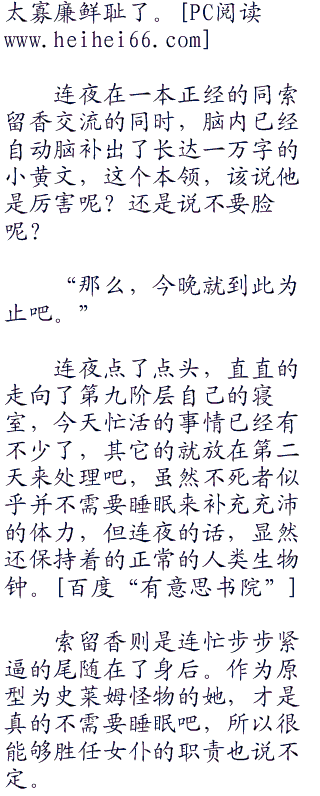 太寡廉鲜耻了。[PC阅读
www.heihei66.com]
连夜在一本正经的同索
留香交流的同时，脑内已经
自动脑补出了长达一万字的
小黄文，这个本领，该说他
是厉害呢？还是说不要脸
呢？
“那么，今晚就到此为
止吧。”
连夜点了点头，直直的
走向了第九阶层自己的寝
室，今天忙活的事情已经有
不少了，其它的就放在第二
天来处理吧，虽然不死者似
乎并不需要睡眠来补充充沛
的体力，但连夜的话，显然
还保持着的正常的人类生物
钟。[百度“有意思书院”]
索留香则是连忙步步紧
逼的尾随在了身后。作为原
型为史莱姆怪物的她，才是
真的不需要睡眠吧，所以很
能够胜任女仆的职责也说不
定。